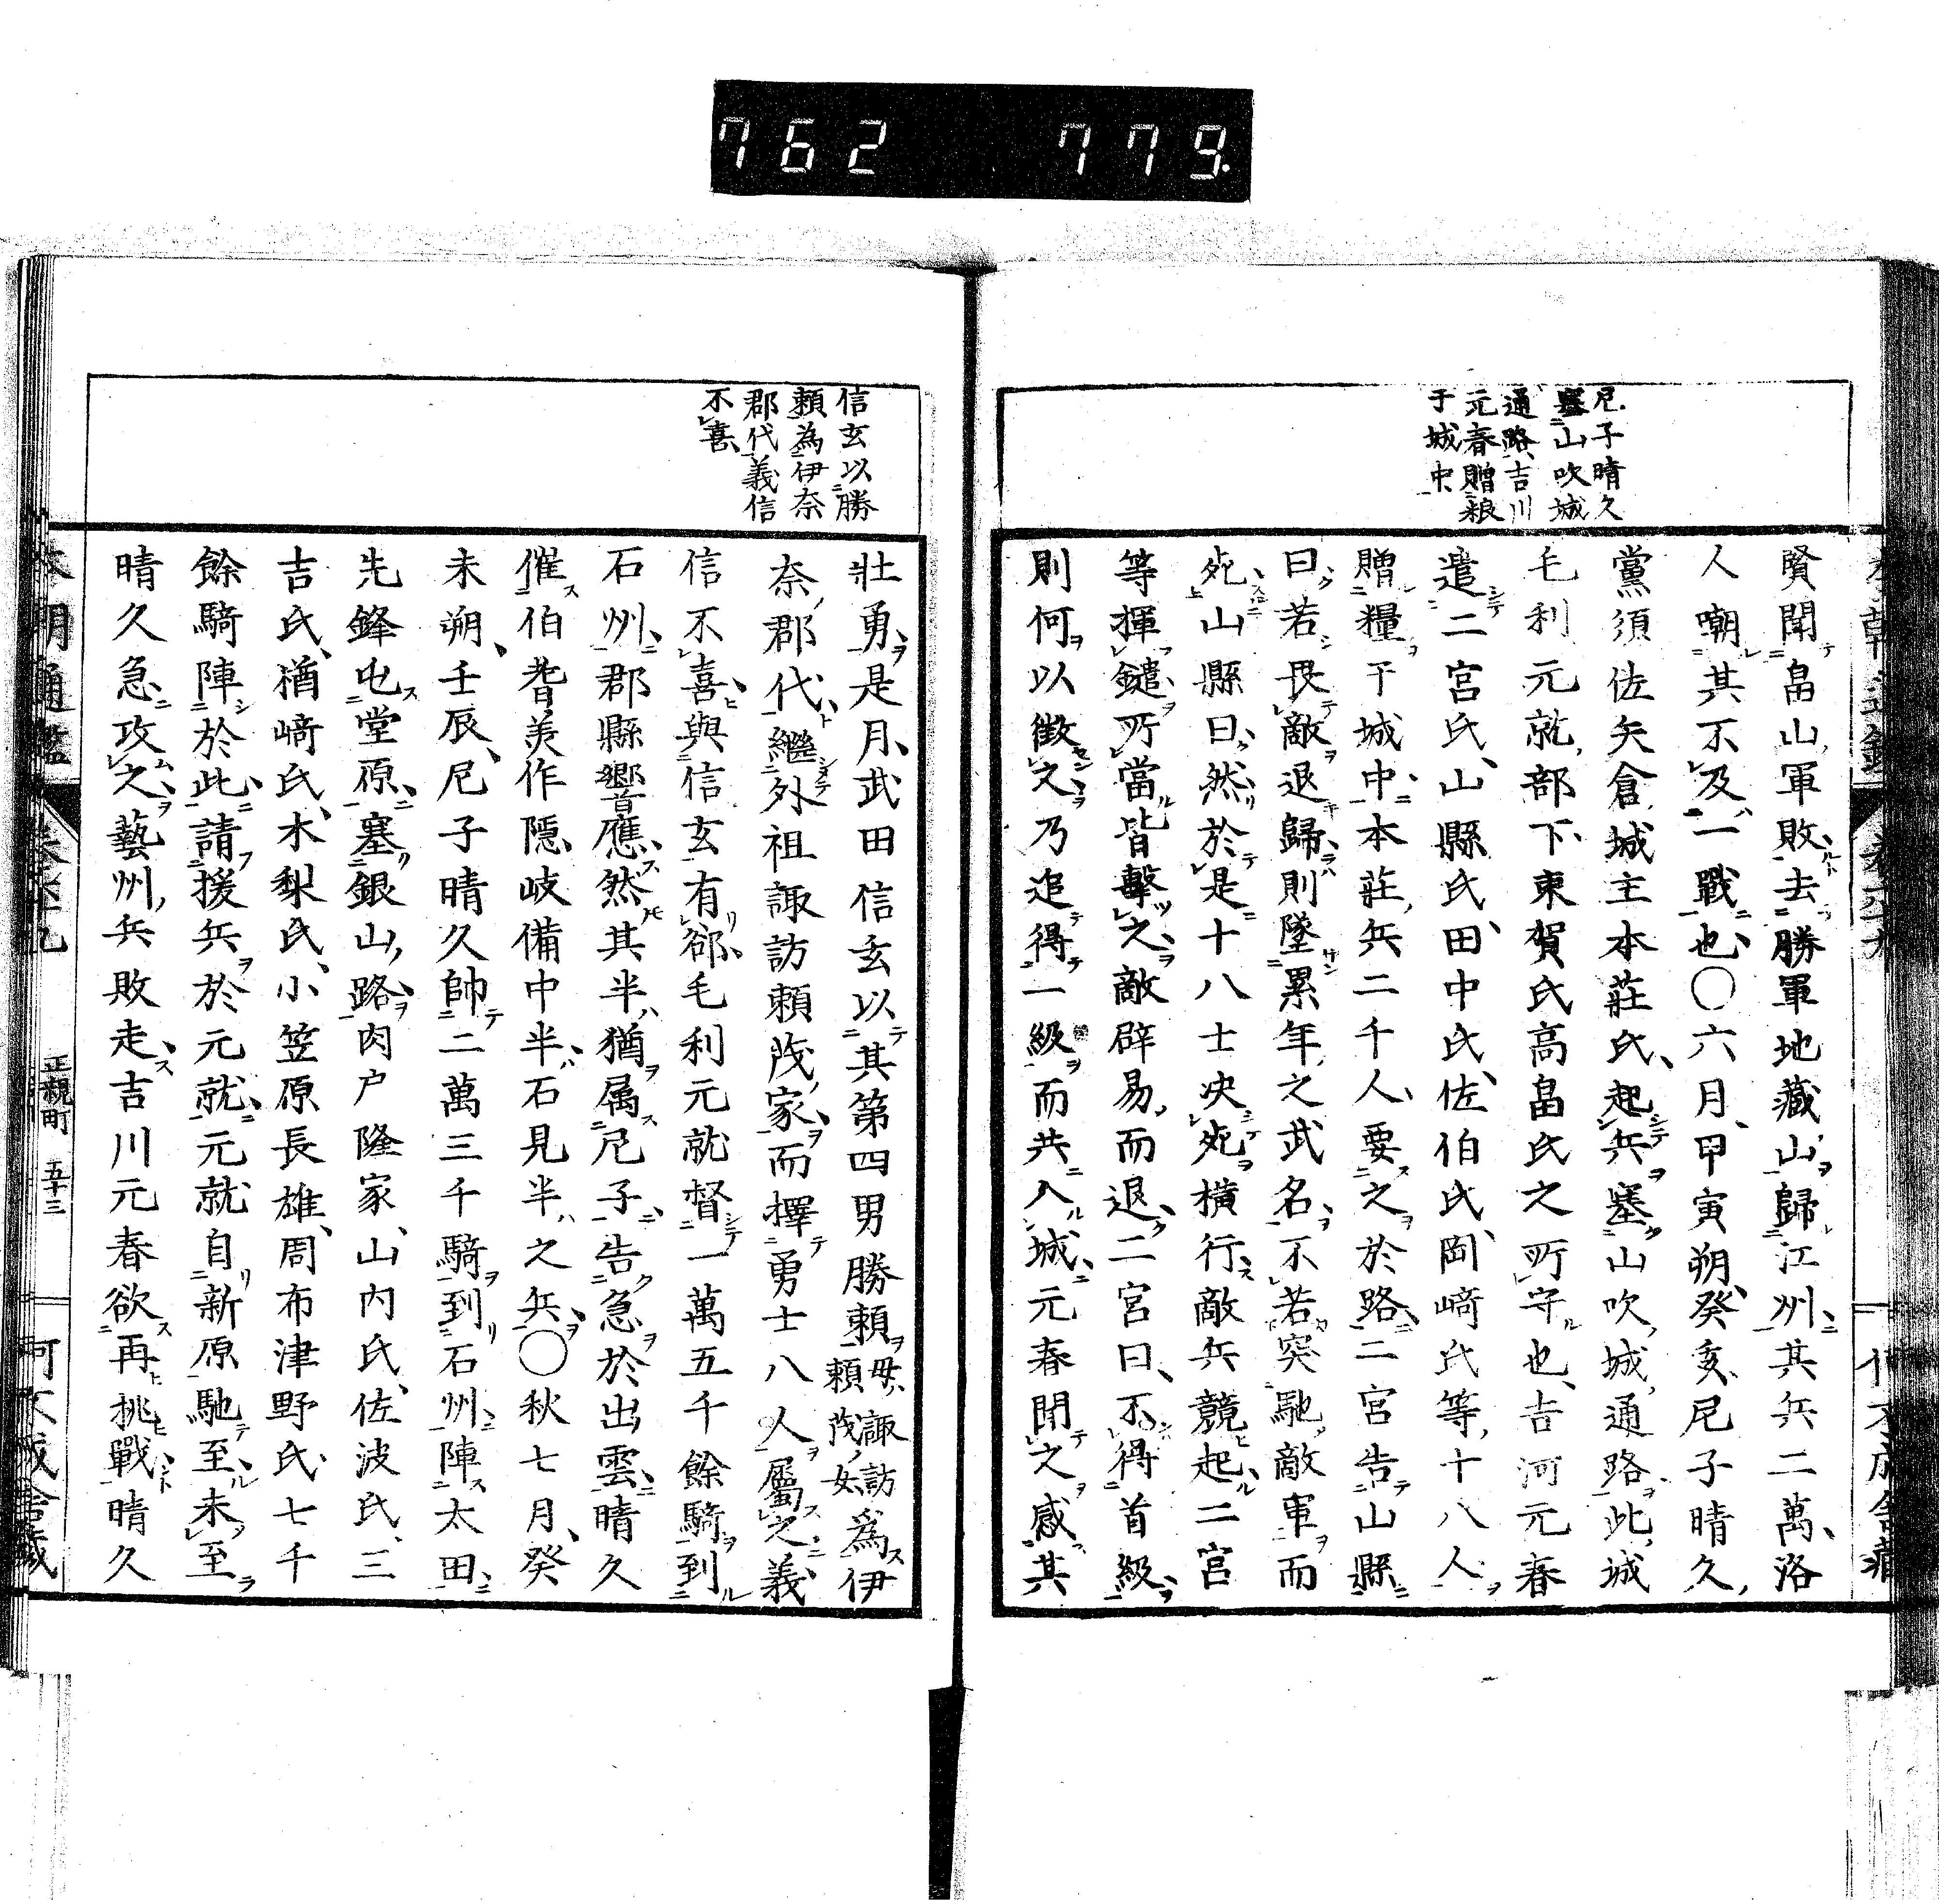 762 779.
尼子晴久
塞山吹城
通路吉川
元春贈粮
于城中
賢聞畠山軍敗去勝軍地藏山歸江州其兵二萬洛
人嘲其不及一戰也〇六月甲寅朔癸亥尼子晴久
黨須佐矢倉城主本莊氏起兵塞山吹城通路此城
毛利元就部下東賀氏高畠氏之所守也吉河元春
遣二宮氏山縣氏田中氏佐伯氏岡﨑氏等十八人
贈糧于城中本莊兵二千人要之於路二宮告山縣
曰若畏敵退歸則墜累年之武名不若突馳敵軍而
死山縣曰然於是十八士决死橫行敵兵競起二宮
等揮鑓所當皆擊之敵辟易而退二宮曰不得首級
則何以徵之乃追得一級而共入城元春聞之感其
信玄以勝
賴為伊奈
郡代義信
不喜
壯勇是月武田信玄以其第四男勝賴母諏訪賴茂女爲伊
奈郡代繼外祖諏訪賴茂家而擇勇士八人屬之義
信不喜與信玄有郤毛利元就督一萬五千餘騎到
石州郡縣響應然其半猶属尼子告急於出雲晴久
催伯耆美作隱岐備中半石見半之兵〇秋七月癸
未朔壬辰尼子晴久帥二萬三千騎到石州陣太田
先鋒屯堂原塞銀山路肉戶隆家山内氏佐波氏三
吉氏楢﨑氏木梨氏小笠原長雄周布津野氏七千
餘騎陣於此請援兵於元就元就自新原馳至未至
晴久急攻之藝州兵敗走吉川元春欲再挑戰晴久
本朝通鑑 卷六十九 正親町 五十三